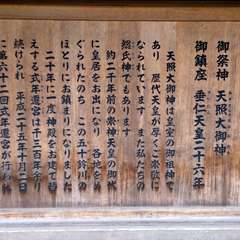 御祭神 天照大御神
御鎮座 垂仁天皇二十六年
天照大御神は皇室の御祖神で
あり 歴代天皇が厚くご崇敬に
なられています また私たちの
総氏神でもあります
約二千年前の崇神天皇の御代
に皇居をお出になり 各地をめ
ぐられたのち この五十鈴川の
ほとりにお鎮まりになりました
二十年に一度神殿をお建て替
えする式年遷宮は千三百年余り
続けられ 平成二十五年十月に
第六十二回式年遷宮が行